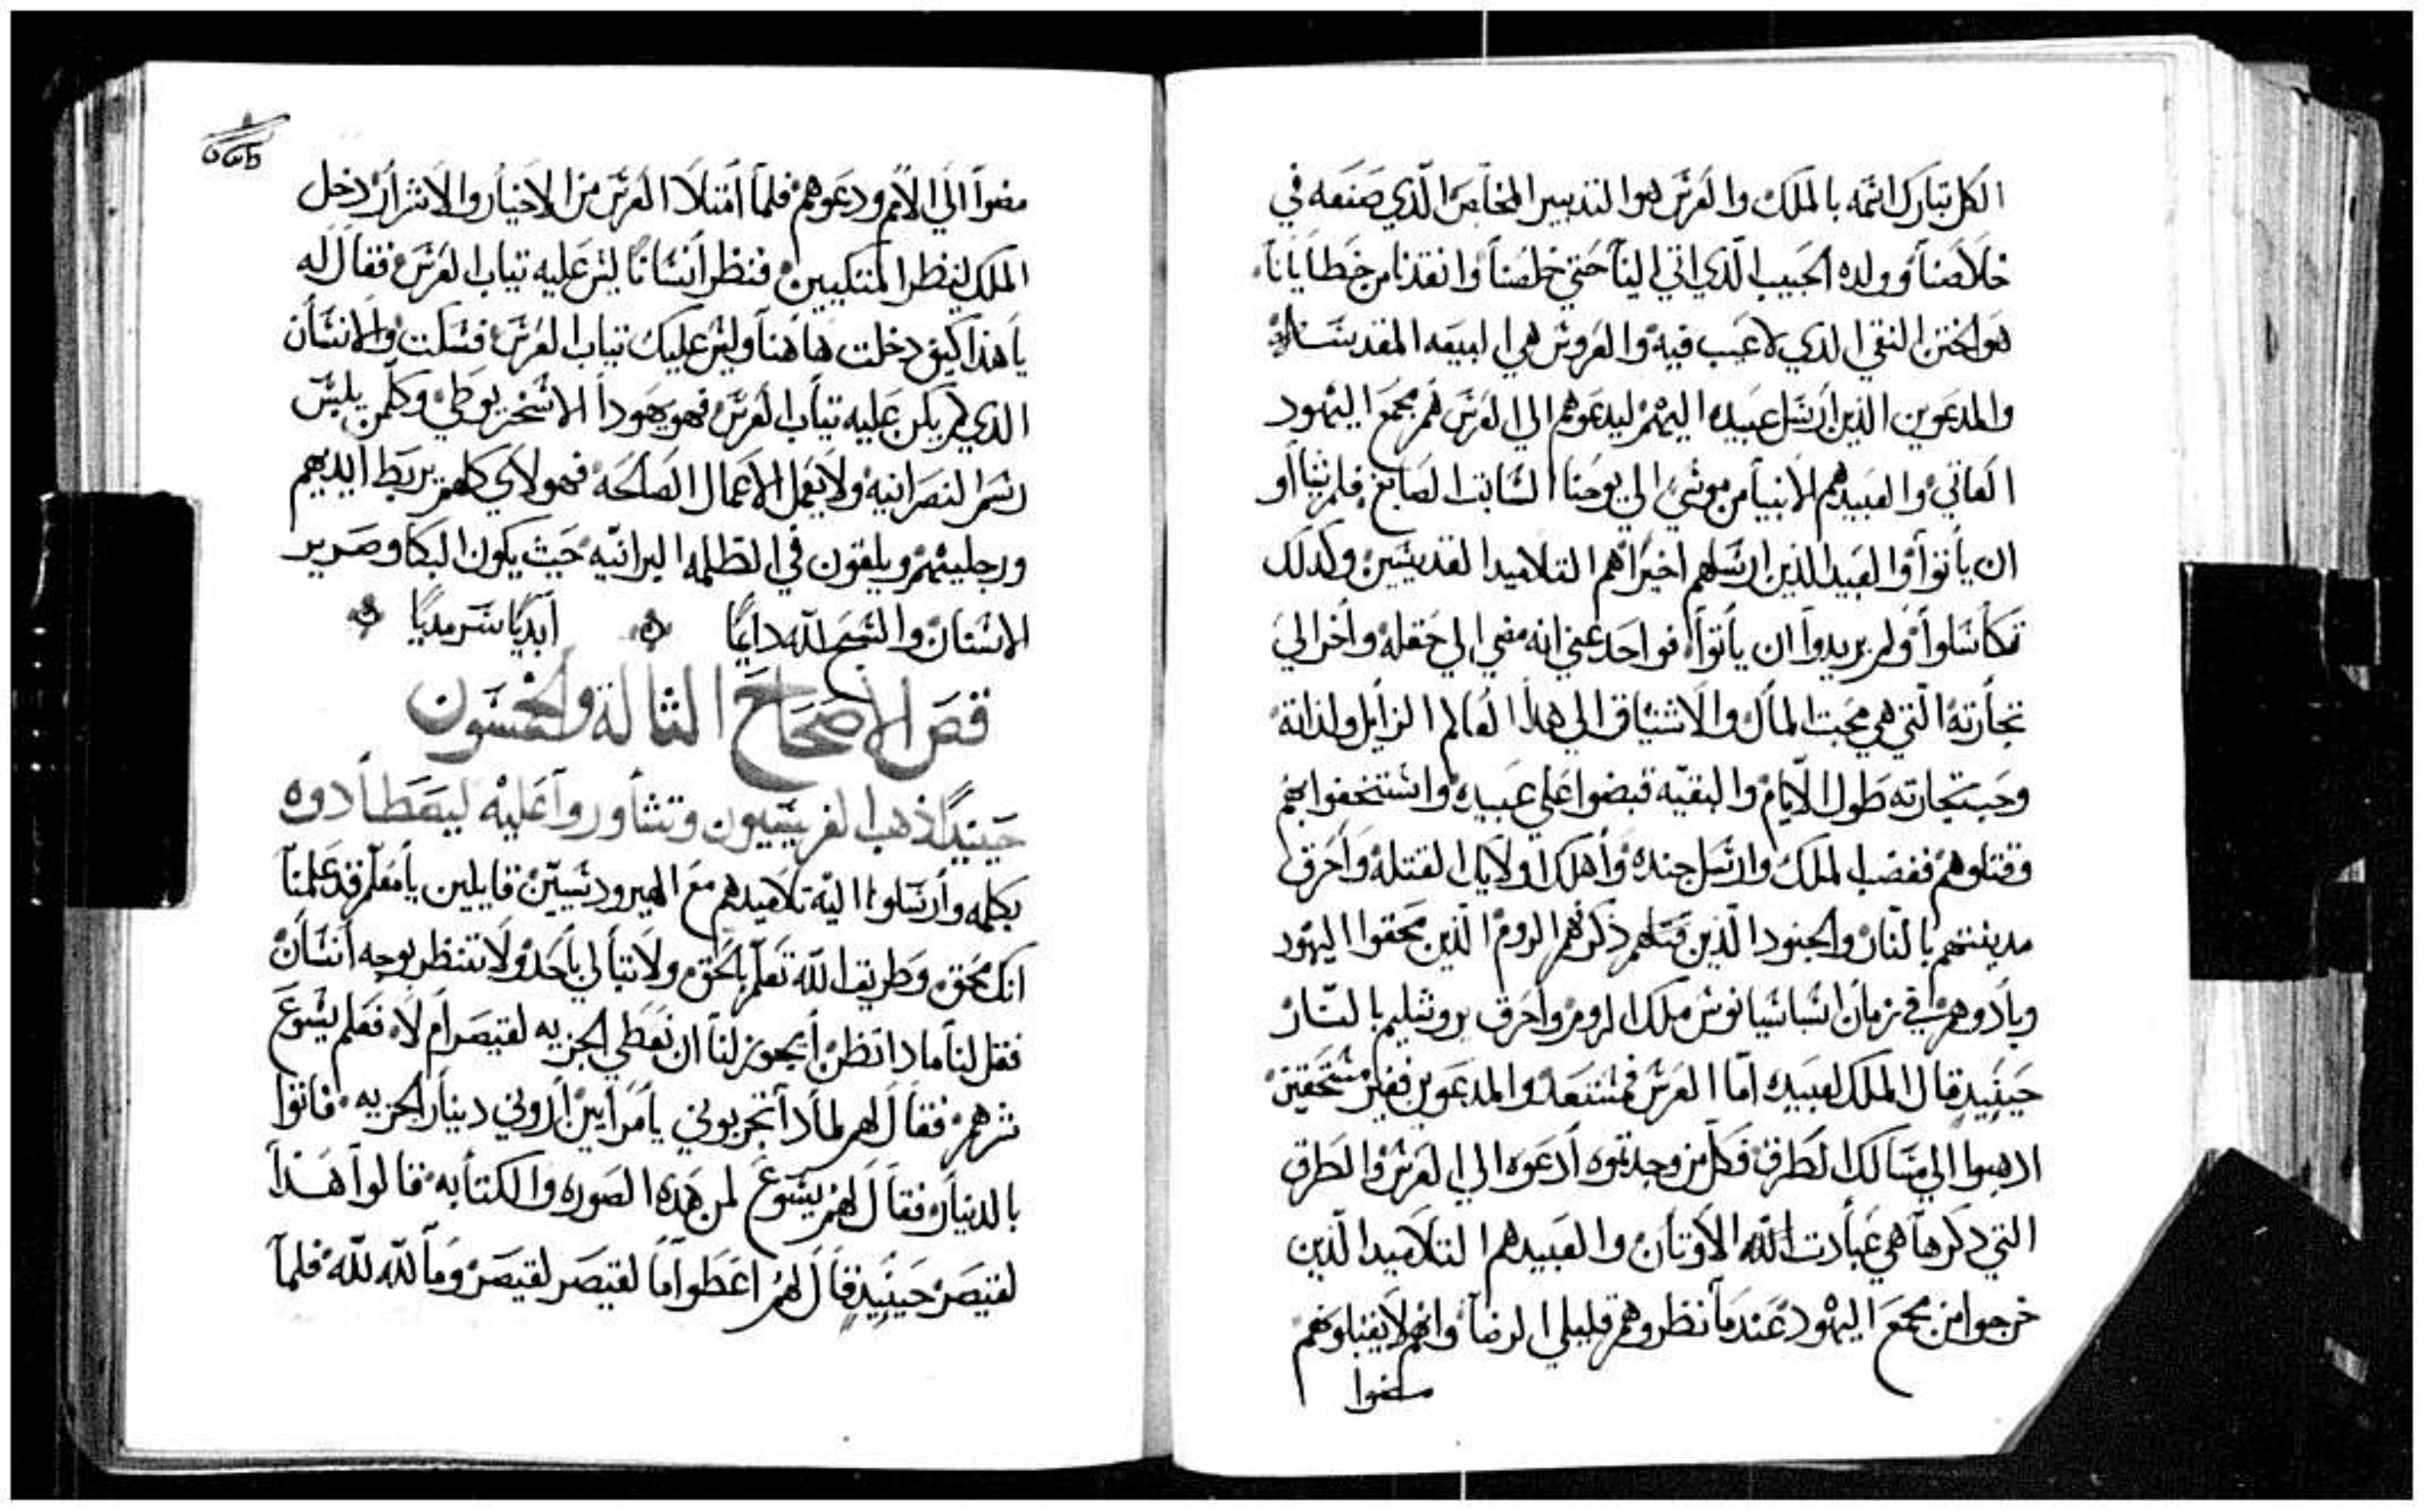 الكل تبارك اسمه بالملك والعرس هو التدبير الخاص الذي صنعه في
خلاصنا وولده الحبيب الذي اتي الينا حتي خلصنا وانقذنا من خطايانا
هو الختن النقي الذي لا عيب فيه والعروس هي البيعه المقدسه
والمدعوين الذين ارسل عبيده اليهم ليدعوهم الي العرس هم مجمع اليهود
العاتي والعبيد هم الانبيا من موسي الي يوحنا السابق الصابغ فلم يشااو
ان ياتوا والعبيد الذين ارسلهم اخيرا هم التلاميد القديسين وكدلك
تكاسلوا ولم يريدوا ان ياتوا فواحد عني انه مضي الي حقله واخر الي
تجارته التي هي محبت المال والاشتياق الي هدا العالم الزايل ولذاته
وحب تجارته طول الايام والبقيه قبضوا علي عبيده واستخفوا بهم
وقتلوهم فغضب الملك وارسل جنده واهلك اولايك القتله واحرق
مدينتهم بالنار والجنود الذين قتلهم ذكر هم الروم الذين محقوا اليهود
وبادوهم في زمان اسباسيانوس ملك الروم واحرق يروشليم بالنار
حينيد قال الملك لعبيده اما العرس فمستعد والمدعوين فغير مستحقين
ادهبوا الي مسالك الطرق فكل من وجدتموه ادعوه الي العرس والطرق
التي دكرها هي عبادت الله الاوتان والعبيد هم التلاميد الذين
خرجوا من مجمع اليهود عندما نظروهم قليلي الرضا وانهم لا يقبلونهم
مضوا
مضوا الي الامم ودعوهم فلما امتلا العرس من الاخيار والاشرار دخل
الملك لينظر المتكيين فنظر انسانا ليس عليه تياب العرس فقال له
يا هذا كيف دخلت هاهنا وليس عليك تياب العرس فسكت والانسان
الذي لم يكن عليه تياب العرس فهو يهودا الاسخريوطي وكلمن يلبس
رسم النصرانيه ولا يعمل الاعمال الصالحه فهولاي كلهم يربط ايديهم
ورجليهم ويلقون في الظلمه البرانيه حيث يكون البكا وصرير
الاسنان والسبح لله دايما ابديا سرمديا
فص الاصحاح الثالة والخمسون
حينيدا ذهب الفريسيون وتشاوروا عليه ليصطادوه
بكلمه وارسلوا اليه تلاميدهم مع الهيرودسيين قايلين يا معلم قد علمنا
انك محق وطريق الله تعلم بالحق ولا تبالي باحد ولا تنظر بوجه انسان
فقل لنا مادا تظن ايجوز لنا ان نعطي الجزيه لقيصر ام لا فعلم يسوع
شرهم فقال لهم لمادا تجربوني يا مرايين اروني دينار الجزيه فاتوا
بالدينار فقال لهم يسوع لمن هذه الصوره والكتابه قالوا هذا
لقيصر حينيد قال لهم اعطوا ما لقيصر لقيصر وما لله لله فلما